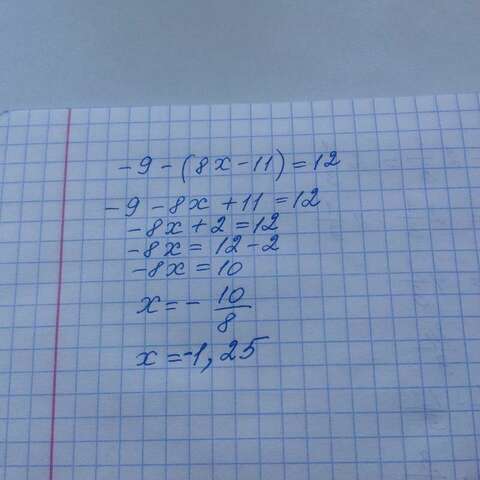 -9-(8x-11)=12
-9-8x+11=12
-8x+2=12
-8x=12-2
-8x=10
x=-10/8
x=-1,25